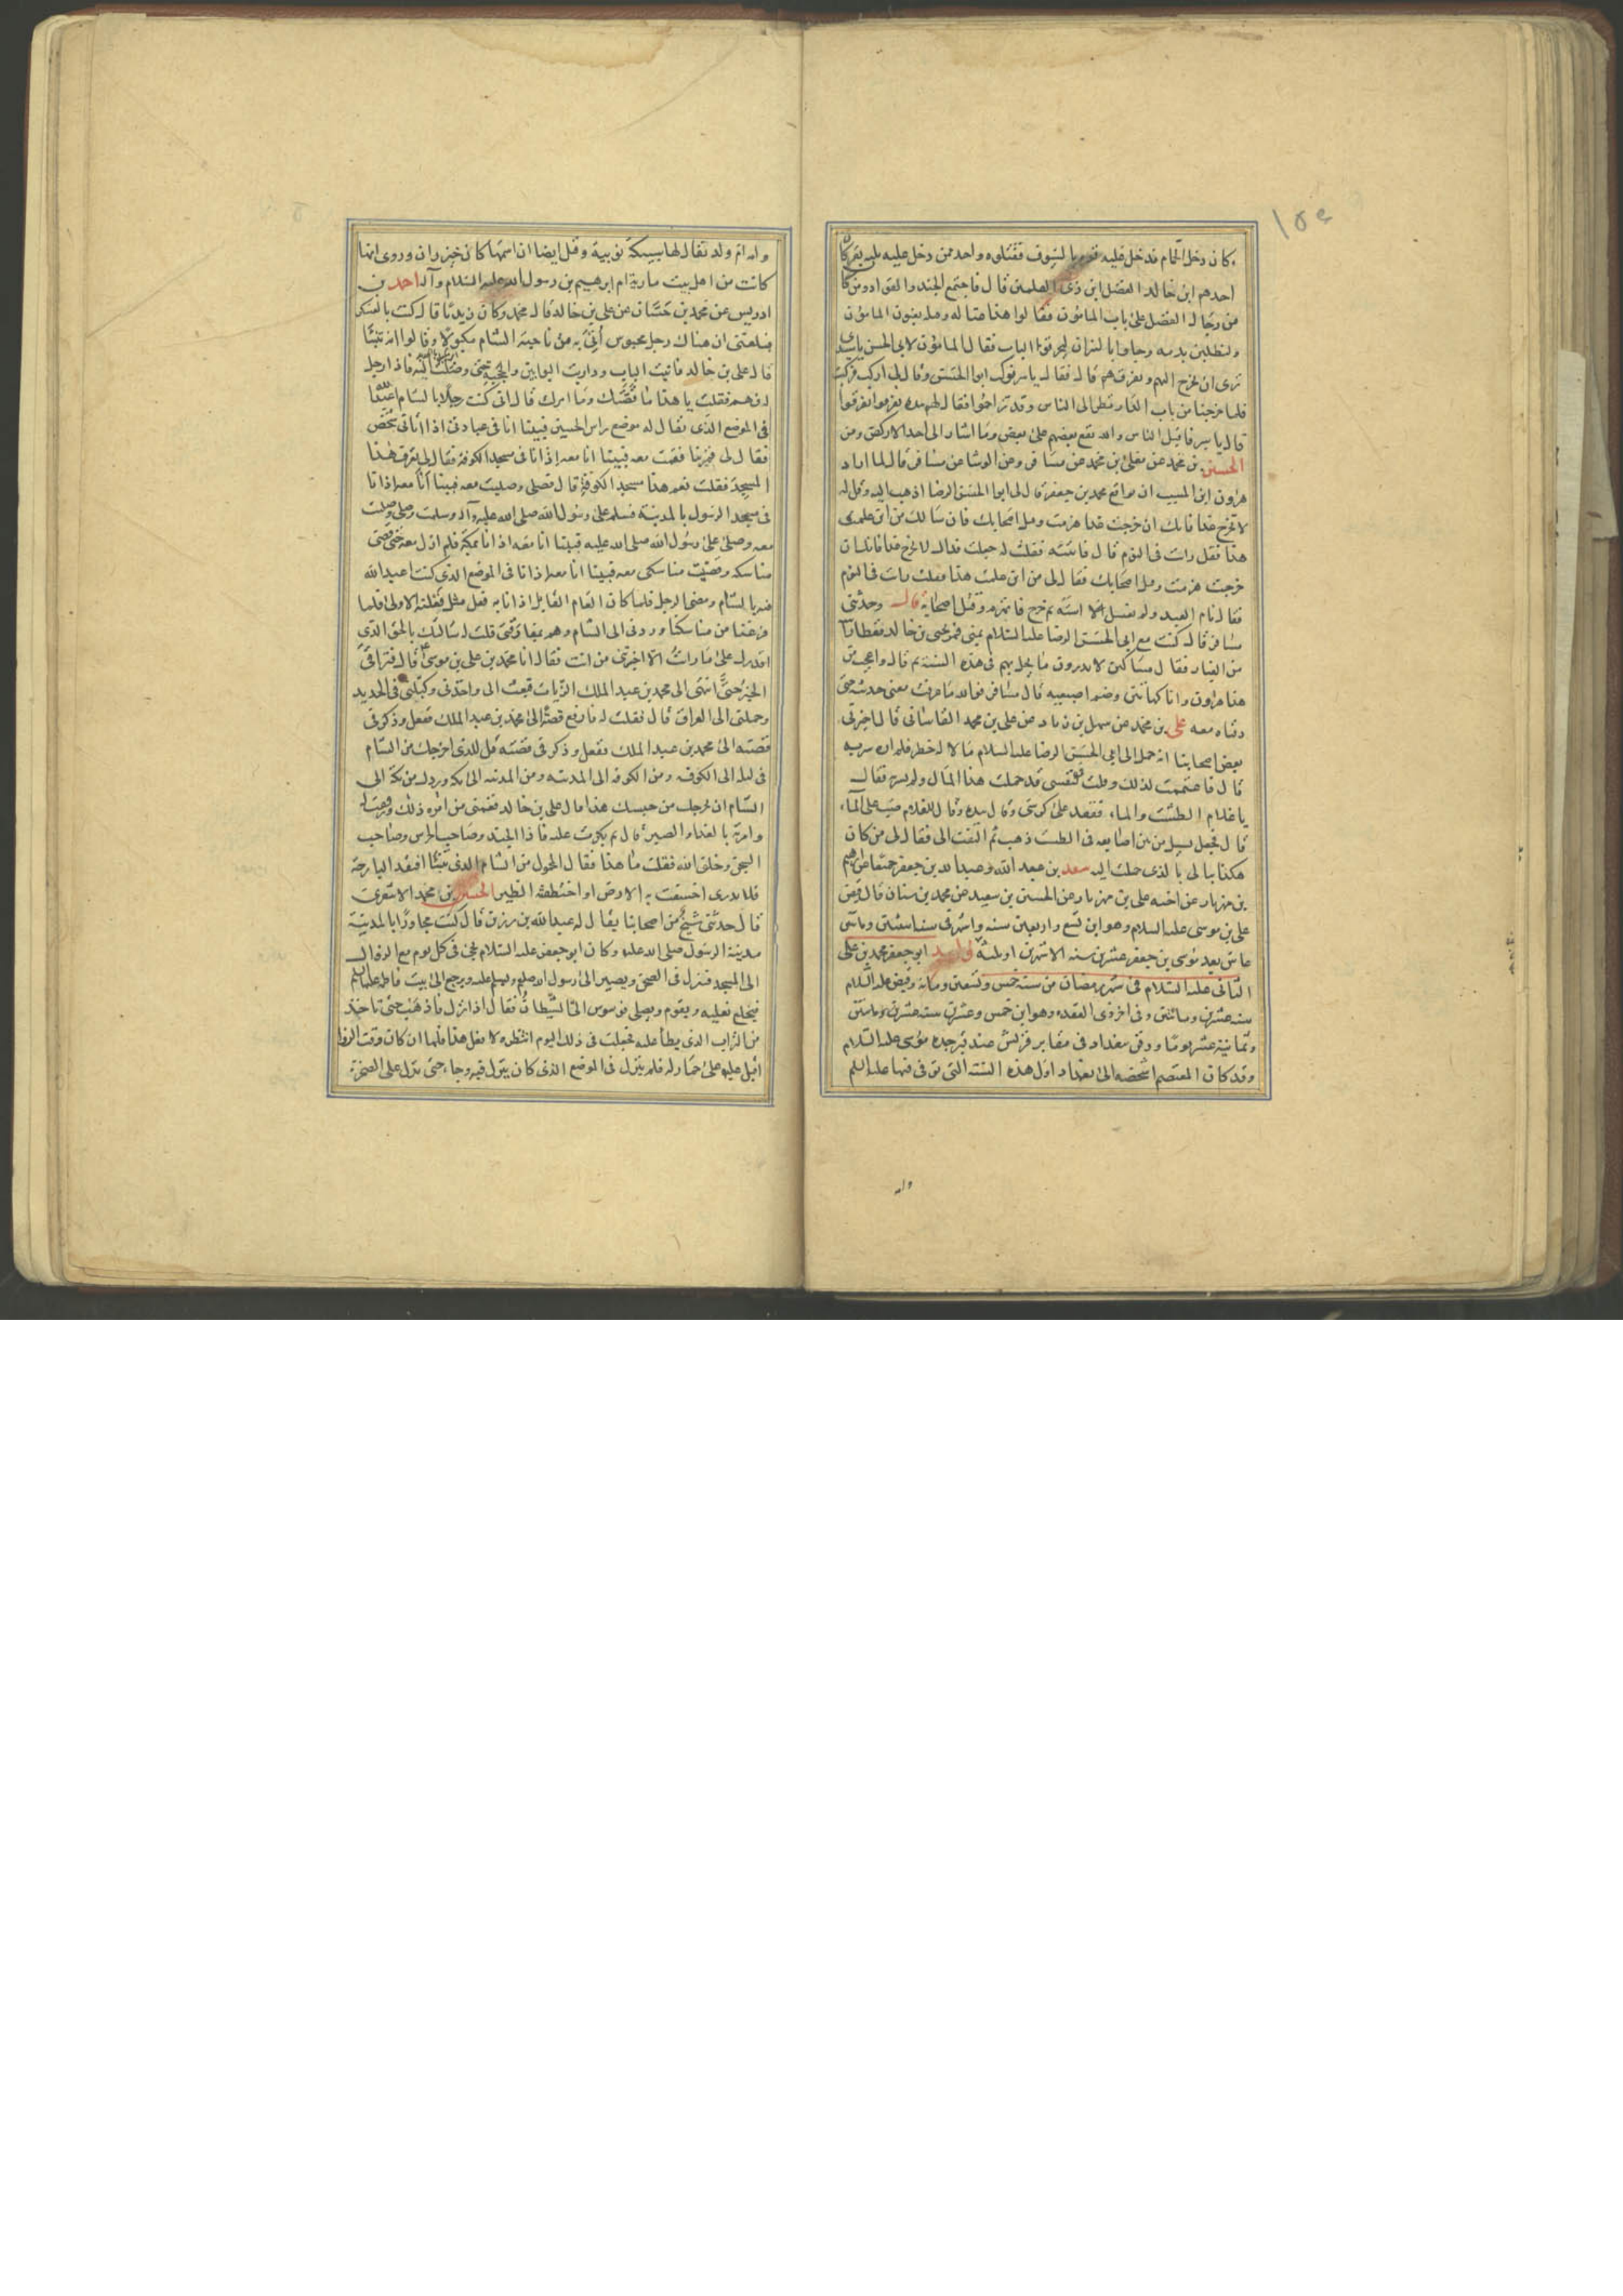 ١٥٤
كان دخل الحمام فدخل عليه قوم بالسيوف فقتلوه واحد ممن دخل عليه ثلثة نفر كان
احدهم ابن خالة الفضل ابن ذي القلمين قال فاجتمع الجند والقواد ومن كان
من رجال الفضل على باب المامون فقالوا هذا اغتاله وقتله يعنون المامون
ولنطلبن بدمه وجاوا بالنيران ليحرقوا الباب فقال المامون لابي الحسن يا سيدي
ترى ان تخرج اليهم وتفرقهم قال فقال ياسر فركب ابو الحسن وقال لي اركب فركبت
فلما خرجنا من باب الدار نظر الى الناس وقد تزاحموا فقال لهم بيده تفرقوا تفرقوا
قال ياسر فاقبل الناس والله يقع بعضهم على بعض وما اشار الى احد الا ركض ومر
الحسين بن محمد عن معلى بن محمد عن مسافر وعن الوشا عن مسافر قال لما اراد
هارون ابن المسيب ان يواقع محمد بن جعفر قال لي ابو الحسن الرضا اذهب اليه وقل له
لا تخرج غدا فانك ان خرجت غدا هزمت وقتل اصحابك فان سالك من اين علمت
هذا فقل رايت في النوم قال فاتيته فقلت له جعلت فداك لا تخرج غدا فانك ان
خرجت هزمت وقتل اصحابك فقال لي من اين علمت هذا فقلت رايت في النوم
فقال نام العبد ولم يغسل استه ثم خرج فانهزم وقتل اصحابه قال وحدثني
مسافر قال كنت مع ابي الحسن الرضا عليه السلام بمنى فمر يحيى بن خالد فغطا راسه
من الغبار فقال مساكين لا يدرون ما يحل بهم في هذه السنة ثم قال واعجب من
هذا هارون وانا كهاتين وضم اصبعيه قال مسافر فوالله ما عرفت معنى حديثه حتى
دفناه معه على بن محمد عن سهل بن زياد عن علي بن محمد القاساني قال اخبرني
بعض اصحابنا انه حمل الى ابي الحسن الرضا عليه السلام مالا له خطر فلم اره سر به
قال فاغتممت لذلك وقلت في نفسي قد حملت هذا المال ولم يسر به فقال
يا غلام الطست والماء فقعد على كرسي وقال بيده وقال للغلام صب على الماء
قال فجعل يسيل من بين اصابعه في الطست ذهب ثم التفت الى فقال لي من كان
هكذا يبالي بالذي حملت اليه سعد بن عبد الله وعبد الله بن جعفر جميعا عن ابرهيم
بن مهزيار عن اخيه علي بن مهزيار عن الحسين بن سعيد عن محمد بن سنان قال قبض
علي بن موسى عليه السلام وهو ابن تسع واربعين سنة واشهر في سنة اثنتين ومائتين
عاش بعد موسى بن جعفر عشرين سنة الا شهرين او ثلثة مولد ابو جعفر محمد بن علي
الثاني عليه السلام في شهر رمضان من سنة خمس وتسعين ومائة وقبض عليه السلام
سنة عشرين ومائتين في اخر ذي القعدة وهو ابن خمس وعشرين سنة وشهرين
وثمانية عشر يوما ودفن ببغداد في مقابر قريش عند قبر جده موسى عليه السلام
وقد كان المعتصم اشخصه الى بغداد اول هذه السنة التي توفي فيها عليه السلم
وامه
وامه ام ولد يقال لها سبيكة نوبية وقيل ايضا ان اسمها كان خيزران وروى انها
كانت من اهل بيت مارية ام ابرهيم بن رسول الله عليه السلام وآله احمد بن
ادريس عن محمد بن حسان عن علي بن خالد قال محمد وكان زيديا قال كنت بالعسكر
فبلغني ان هناك رجل محبوس أُتي به من ناحية الشام مكبولا وقالوا انه تنبّأ
قال علي بن خالد فاتيت الباب وداريت البوابين والحجبة حتى وصلت اليه فاذا رجل
له فهم فقلت يا هذا ما قصتك وما امرك قال اني كنت رجلا بالشام اعبد الله
في الموضع الذي يقال له موضع راس الحسين فبينا انا في عبادتي اذ اتاني شخص
فقال لي قم بنا فقمت معه فبينا انا معه اذا انا في مسجد الكوفة فقال لي تعرف هذا
المسجد فقلت نعم هذا مسجد الكوفة قال فصلى وصليت معه فبينا انا معه اذا انا
في مسجد الرسول بالمدينة فسلم على رسول الله صلى الله عليه وآله وسلمت وصلى وصليت
معه وصلى على رسول الله صلى الله عليه فبينا انا معه اذ انا بمكة فلم ازل معه حتى قضى
مناسكه وقضيت مناسكي معه فبينا انا معه اذا انا في الموضع الذي كنت اعبد الله
فيه بالشام ومضى الرجل فلما كان العام القابل اذا انا به فعل مثل فعلته الاولى فلما
فرغنا من مناسكنا وردني الى الشام وهم بمفارقتي قلت له سالتك بالحق الذي
اقدرك على ما رايت الا اخبرتني من انت فقال انا محمد بن علي بن موسى قال فتراقى
الخبر حتى انتهى الى محمد بن عبد الملك الزيات فبعث الى واخذني وكبلني في الحديد
وحملني الى العراق قال فقلت له فارفع قصة الى محمد بن عبد الملك ففعل وذكر في
قصته الى محمد بن عبد الملك ففعل وذكر في قصته قل للذي اخرجك من الشام
في ليلة الى الكوفة ومن الكوفة الى المدينة ومن المدينة الى مكة وردك من مكة الى
الشام ان يخرجك من حبسك هذا قال علي بن خالد فغمني من امره ذلك ورققت له
وامرته بالعزاء والصبر قال ثم بكرت عليه فاذا الجند وصاحب الحرس وصاحب
السجن وخلق الله فقلت ما هذا فقال المحمول من الشام الذي تنبأ افتقد البارحة
فلا يدرى اخسفت به الارض او اختطفه الطير الحسين بن محمد الاشعري
قال حدثني شيخ من اصحابنا يقال له عبد الله بن رزين قال كنت مجاورا بالمدينة
مدينة الرسول صلى الله عليه وكان ابو جعفر عليه السلام يجئ في كل يوم مع الزوال
الى المسجد فينزل في الصحن ويصير الى رسول الله صلعم ويسلم عليه ويرجع الى بيت فاطمة عليها السلم
فيخلع نعليه ويقوم ويصلي فوسوس الي الشيطان فقال اذا نزل فاذهب حتى تاخذ
من التراب الذي يطأ عليه فجلست في ذلك اليوم انتظره لافعل هذا فلما ان كان وقت الزوال
اقبل عليه على حمار له فلم ينزل في الموضع الذي كان ينزل فيه وجاء حتى نزل على الصخرة